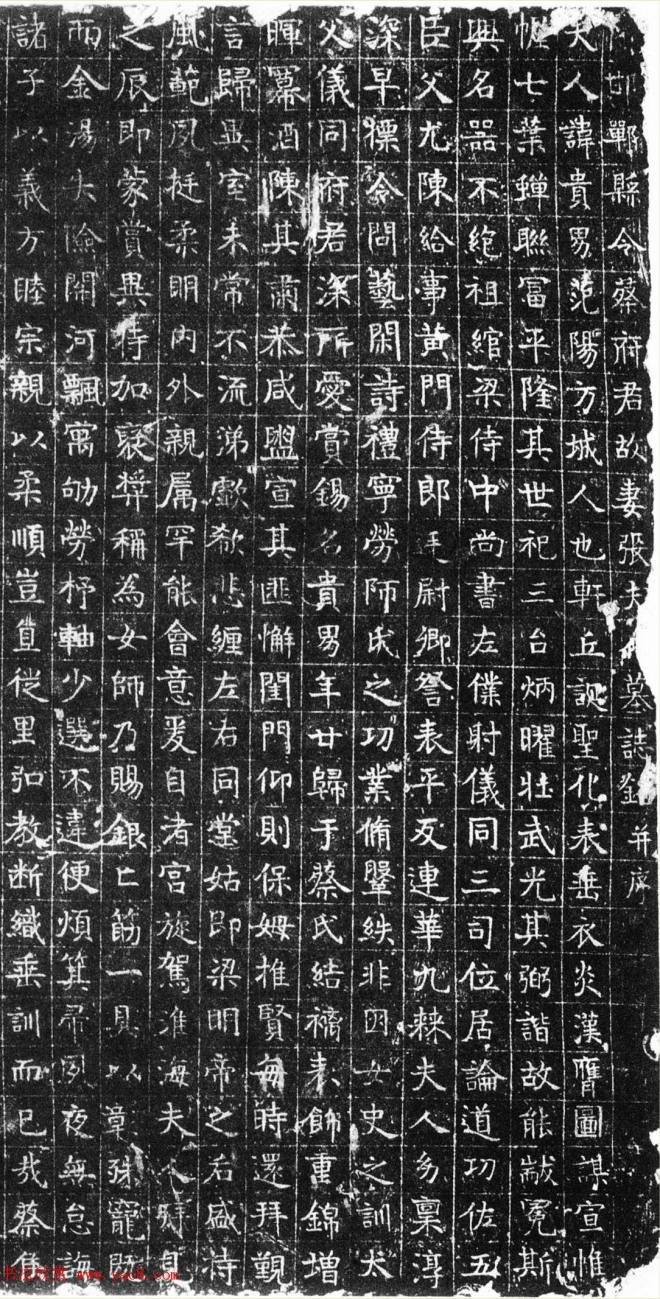 邯鄲縣令蔡府君故妻張夫人墓誌銘并序
夫人諱貴男范陽方城人也軒丘誕聖化表垂衣炎漢膺圖謀宣惟
幄七葉蟬聯冨平隆其世祀三台炳曜壯武光其弼諧故能黻冕斯
興名器不絶祖綰梁侍中尚書左僕射儀同三司位居論道功佐五
臣父尤陳給事黄門侍郎廷尉卿譽表平反連華九棘夫人幼稟淳
深早摽令問藝閑詩禮寧勞師氏之功業脩鞶絲非因女史之訓大
父儀同府君深所愛賞錫名貴男年廿歸于蔡氏結褵表飾重錦增
暉羃酒陳其肅恭咸盥宣其匪懈閨門仰則保姆推賢每時還拜覲
言歸其室未常不流涕歔欷悲纏左右同堂姑即梁明帝之后盛侍
風範夙挺柔明内外親属罕能會意爰自渚宮旋駕淮海夫人
之辰即蒙賞異特加褒獎稱為女師乃賜銀匕筯一具以章殊寵既
而金湯失險關河飄寓劬勞杼軸少選不違便煩箕帚夙夜無怠誨
諸子以義方睦宗親以柔順豈直徙里弘教断織垂訓而已哉蔡
www.yac8.com